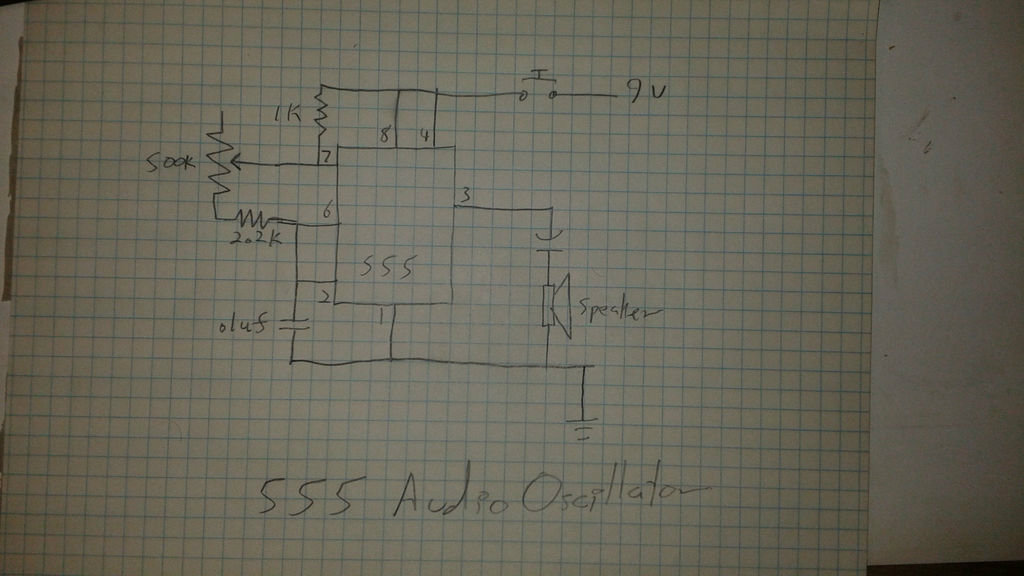 9V
1K
8
4
500K
7
3
6
2.2K
555
2
1
.01uf
Speaker
555 Audio Oscillator